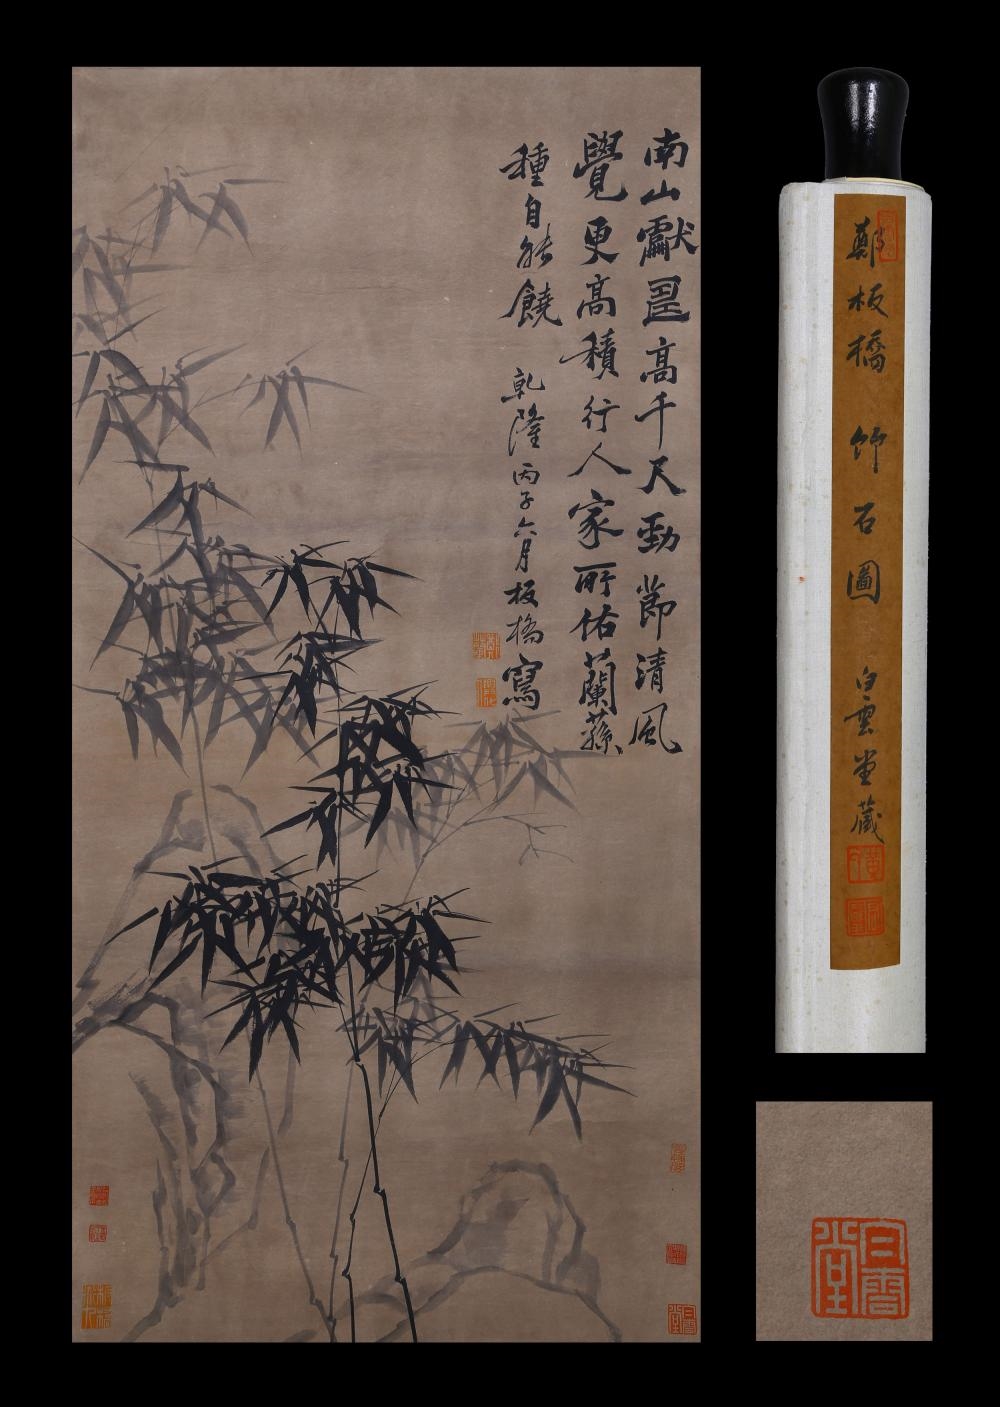 南山獻𡈽高千尺勁節清風
覺更高積行人家所佑蘭蓀
種自能饒
乾隆丙子六月板橋寫
鄭板橋竹石圖 白雲堂藏
白雲堂